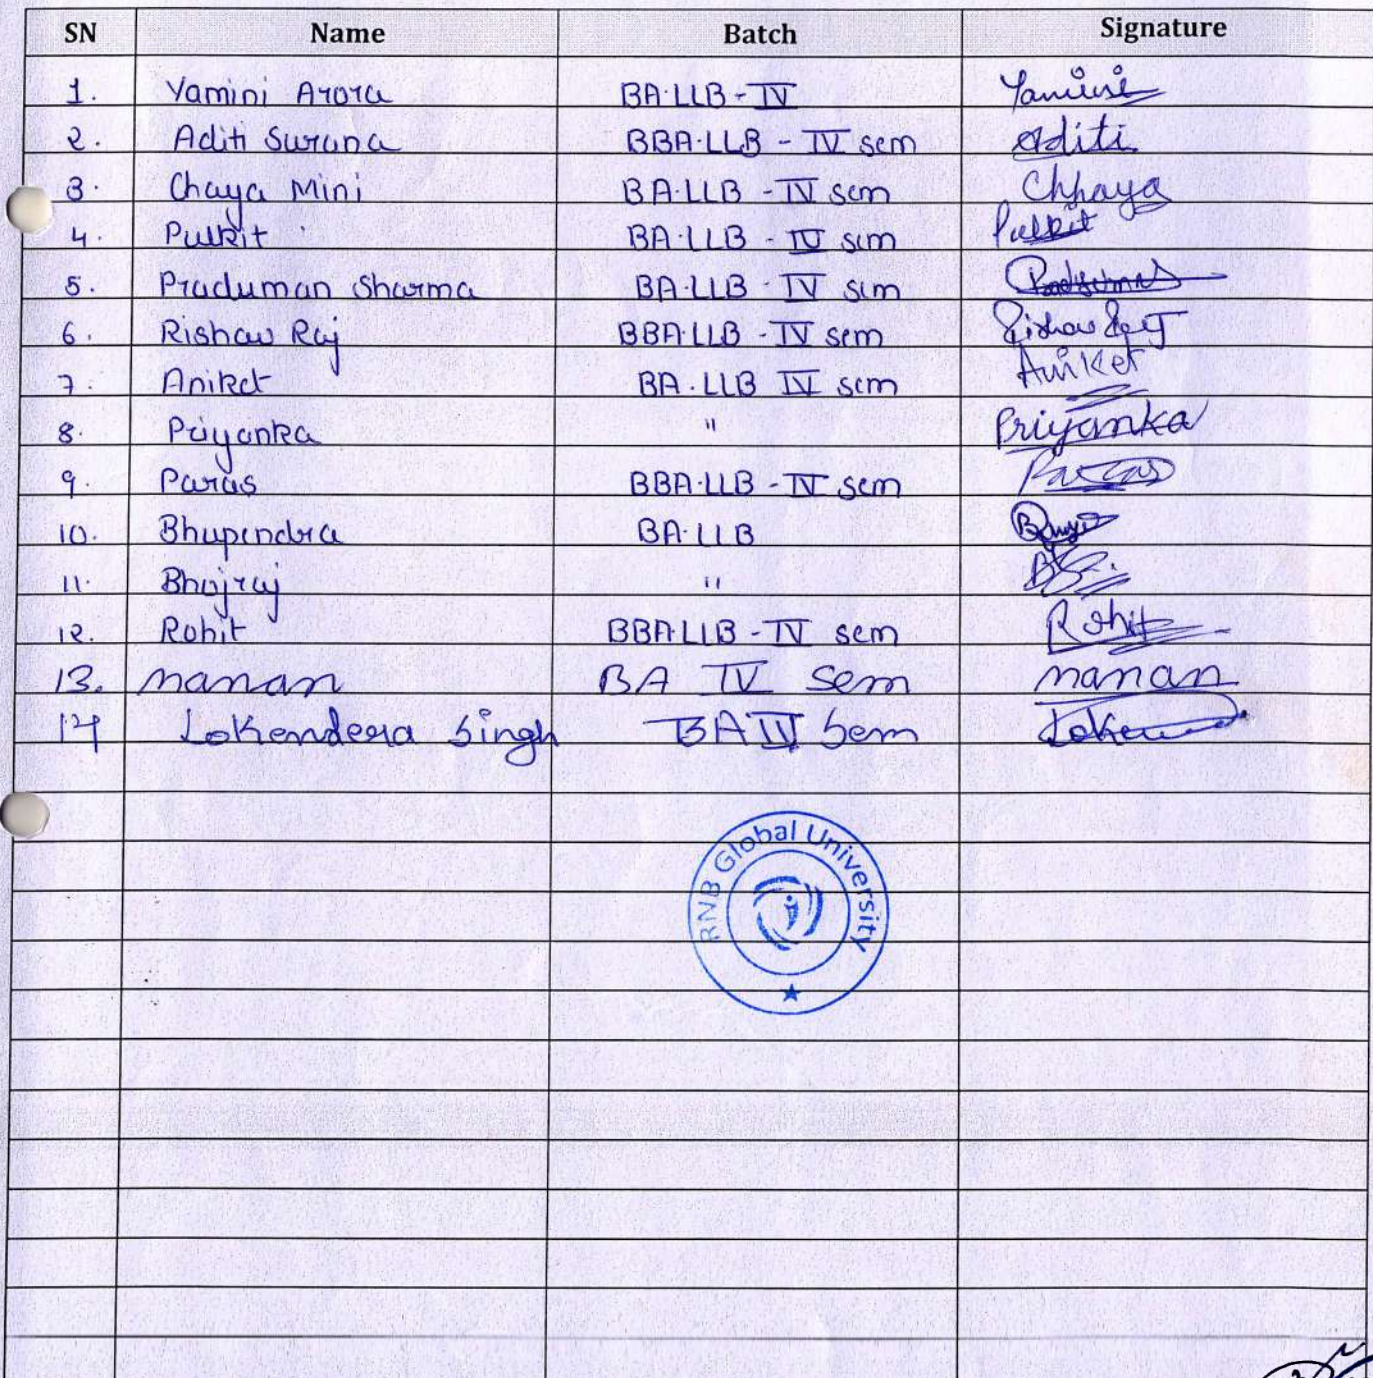 SN Name Batch Signature
1. Yamini Arora BA.LLB - IV Yamini
2. Aditi Surana BBA.LLB - IV sem Aditi
3. Chaya Mini BA.LLB - IV sem Chhaya
4. Pulkit BA.LLB - IV sem Pulkit
5. Praduman Sharma BA.LLB - IV sem
6. Rishav Raj BBA.LLB - IV sem Rishav Raj
7. Aniket BA.LLB IV sem Aniket
8. Priyanka " Priyanka
9. Paras BBA.LLB - IV sem Paras
10. Bhupendra BA.LLB
11. Bhojraj "
12. Rohit BBA LLB - IV sem Rohit
13. manan BA IV Sem manan
14 Lokendera Singh BA IV Sem
RNB Global University